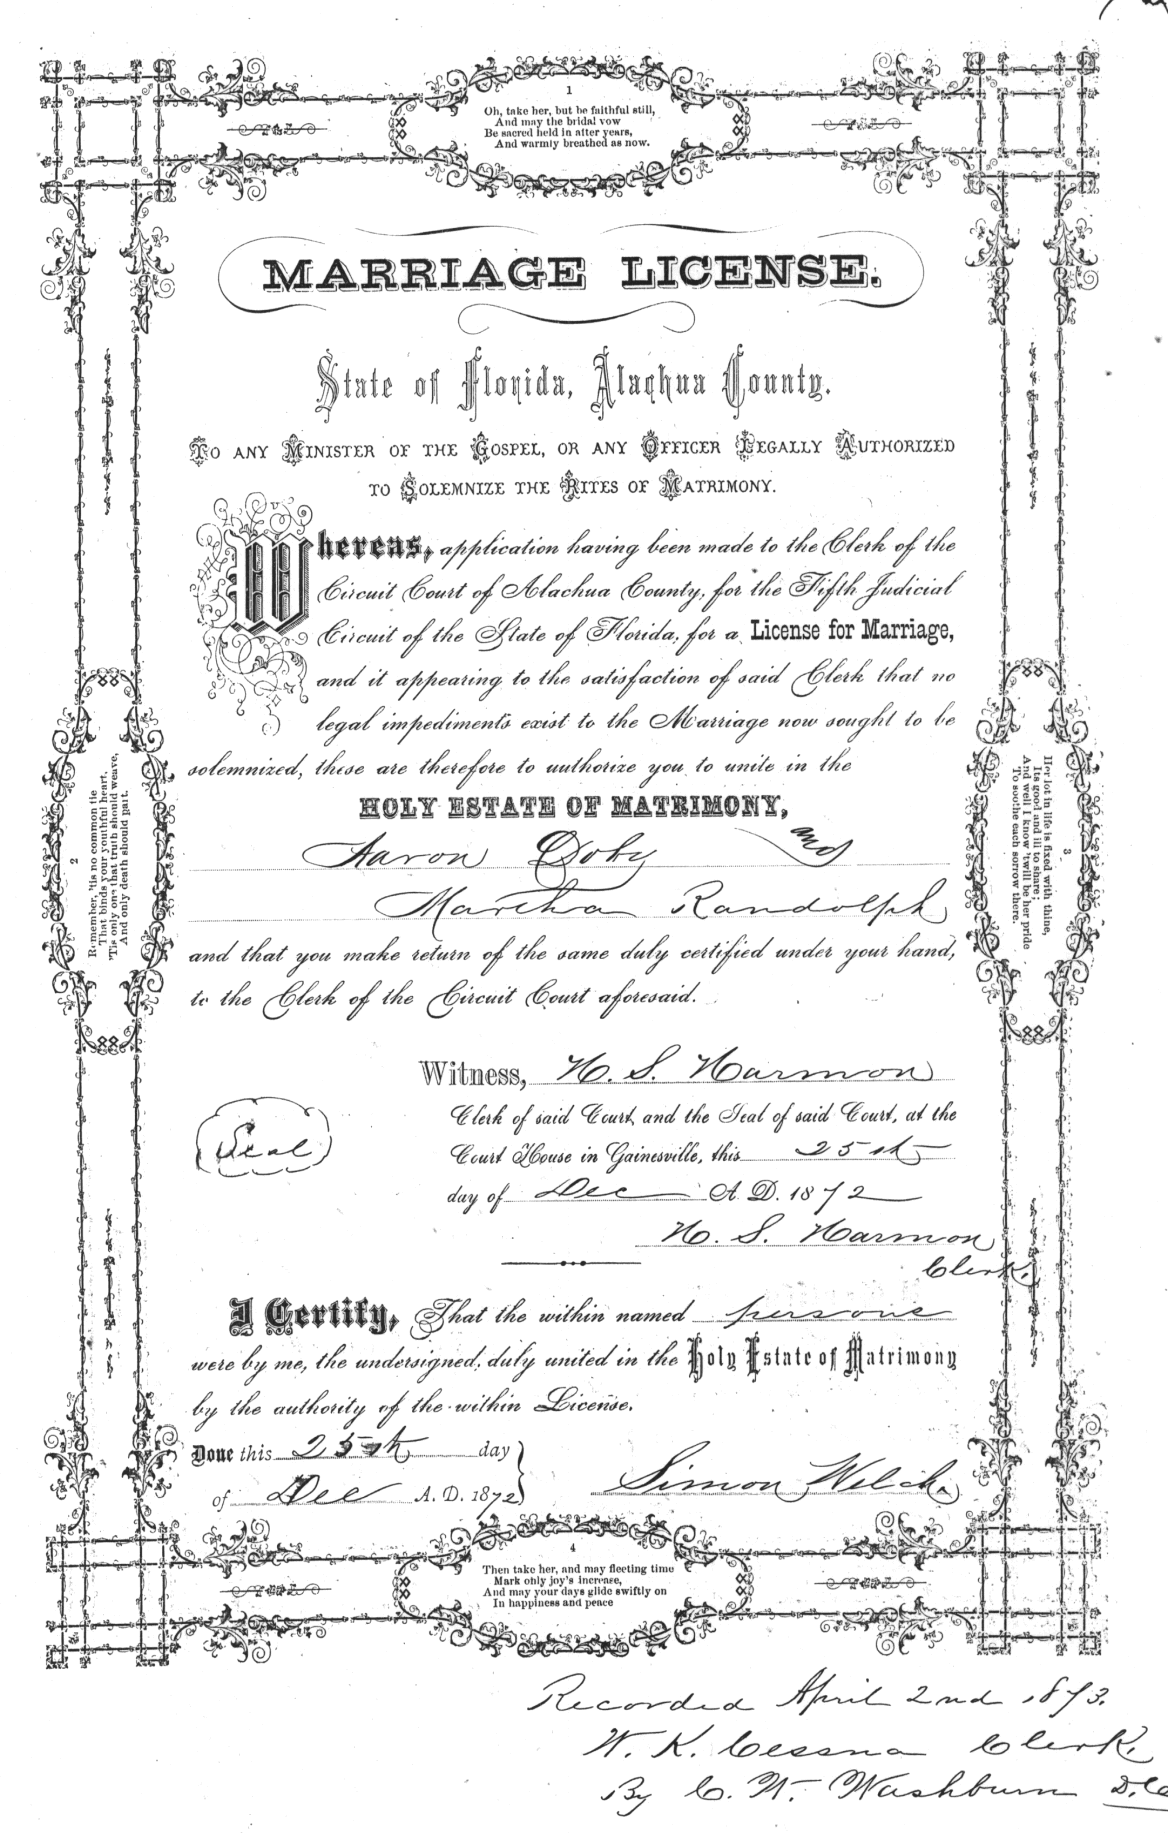 1
Oh, take her, but be faithful still,
And may the bridal vow
Be sacred held in after years,
And warmly breathed as now.
MARRIAGE LICENSE.
State of Florida, Alachua County.
To any Minister of the Gospel, or any Officer Legally Authorized
to Solemnize the Rites of Matrimony.
Whereas, application having been made to the Clerk of the
Circuit Court of Alachua County, for the Fifth Judicial
Circuit of the State of Florida, for a License for Marriage,
and it appearing to the satisfaction of said Clerk that no
legal impediments exist to the Marriage now sought to be
solemnized, these are therefore to authorize you to unite in the
HOLY ESTATE OF MATRIMONY,
Aaron Doby and
Martha Randolph
and that you make return of the same duly certified under your hand,
to the Clerk of the Circuit Court aforesaid.
2
Remember, 'tis no common tie
That binds your youthful heart,
'Tis only one that truth should weave,
And only death should part.
3
Her lot in life is fixed with thine,
Its good and ill to share;
And well I know 'twill be her pride
To soothe each sorrow there.
Witness, H. S. Harmon
Clerk of said Court, and the Seal of said Court, at the
Court House in Gainesville, this 25th
day of Dec A. D. 1872
Seal
H. S. Harmon
Clerk.
I Certify, That the within named persons
were by me, the undersigned, duly united in the Holy Estate of Matrimony
by the authority of the within License.
Done this 25th day
of Dec A. D. 1872
Simon Welch.
4
Then take her, and may fleeting time
Mark only joy's increase,
And may your days glide swiftly on
In happiness and peace
Recorded April 2nd 1873.
W. K. Cessna Clerk.
By C. W. Washburn